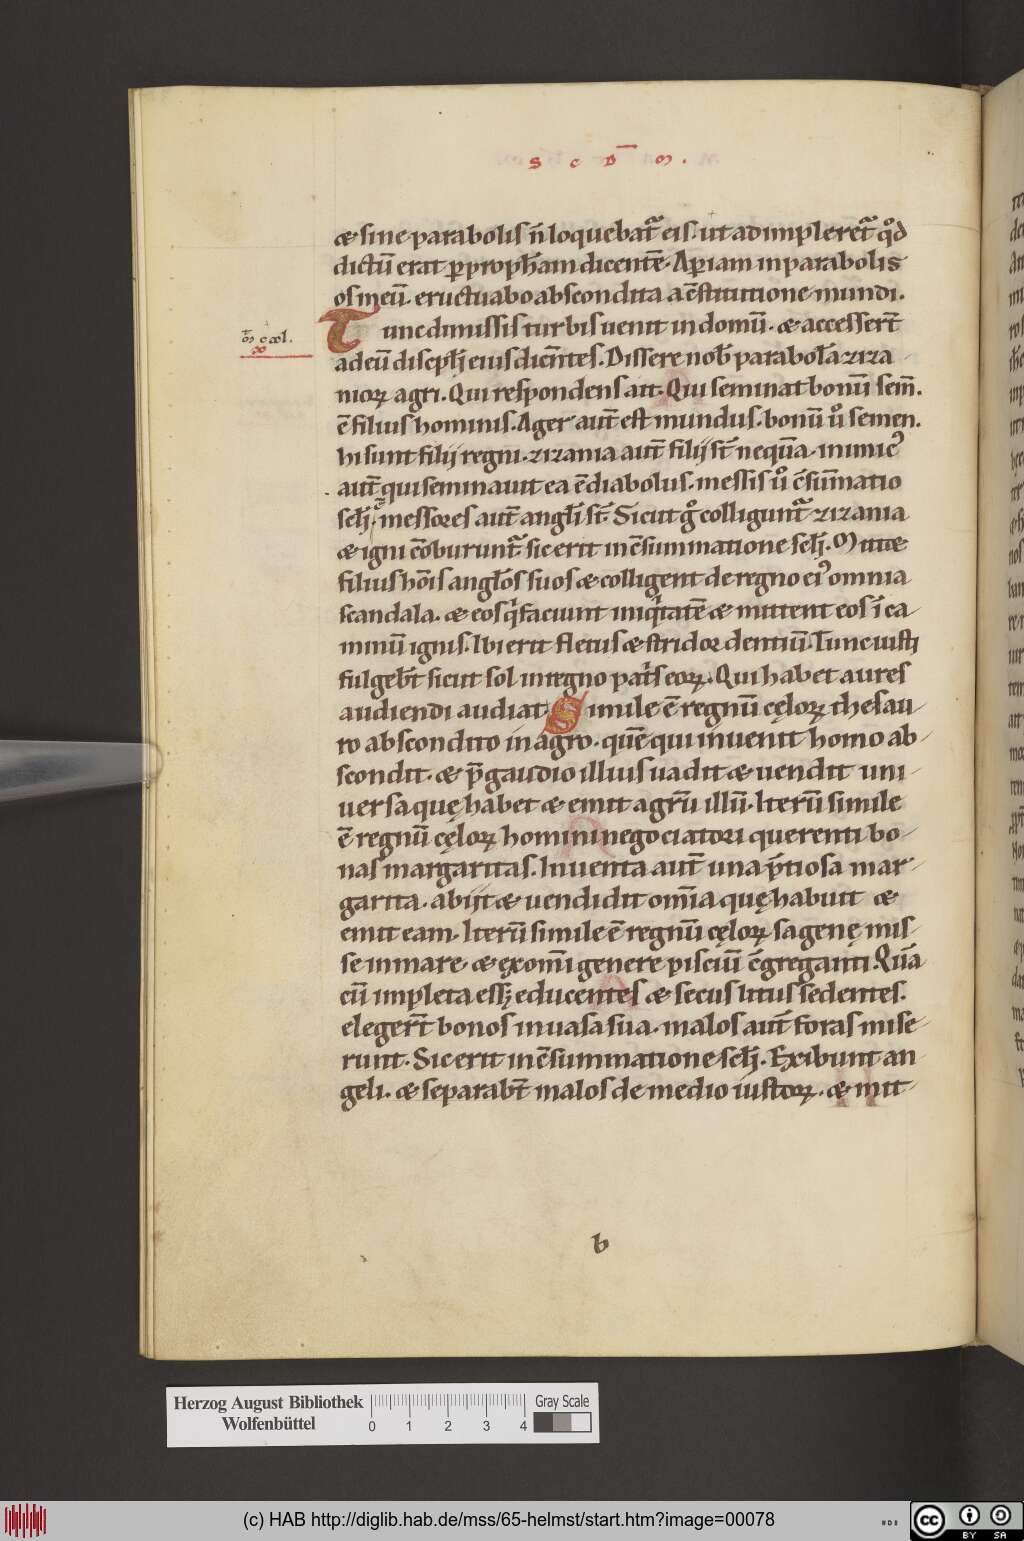 S C D̅ M .
& sine parabolis n̄ loquebat᷑ eis. ut adimpleret᷑ qd̊
dictū erat p̱ propħam dicentē. Ap̱iam in parabolis
os meū. eructuabo abscondita a ɔ̄stitutione mundi.
m̅ cxl.
x
Tunc dimissis turbis uenit in domū. & accesserт̄
ad eū discipłi eius dicn̄tes. Dissere nob̄ paraboła ziza
nioꝝ agri. Qui respondens ait. Qui seminat bonū sem̄.
ē filius hominis. Ager aut̄ est mundus. bonū ů semen.
hi sunt filij regni. zizania aut̄ filij st̄ neq̄ua. inimicꝰ
aut̄ qui seminauit ea ē diabolus. messis ů ɔ̄sum̄atio
scłi. messores aut̄ angłi st̄. Sicut g̊ colligunt᷑ zizania
& igni ɔ̄burunt᷑ sic erit in ɔ̄summatione scłi. Mitt&
filius hōis angłos suos & colligent de regno eiꝰ omnia
scandala. & eos qͥ faciunt iniqͥtatē & mittent eos ī ca
minū ignis. Ibi erit fletus & stridor dentiū. Tunc iusti
fulgebt̄ sicut sol in regno patͥs eoꝝ. Qui habet aures
audiendi audiat. Simile ē regnū cęloꝝ thesau
ro abscondito in agro. quē qui inuenit homo ab
scondit. & p̄ gaudio illius uadit & uendit uni
uersa quę habet & emit agrū illū. Iterū simile
ē regnū cęloꝝ homini negociatori querenti bo
nas margaritas. Inuenta aut̄ una p̄tiosa mar
garita. abijt & uendidit om̄ia quę habuit &
emit eam. Iterū simile ē regnū cęloꝝ sagenę mis
se in mare & ex om̄i genere pisciū ɔ̄greganti. Quā
cū impleta ess; educentes & secus litus sedentes.
elegert̄ bonos in uasa sua. malos aut̄ foras mise
runt. Sic erit in ɔ̄summatione scłi. Exibunt an
geli. & separabt̄ malos de medio iustoꝝ. & mit
b
Herzog August Bibliothek
Wolfenbüttel
0 1 2 3 4
Gray Scale
(c) HAB http://diglib.hab.de/mss/65-helmst/start.htm?image=00078
cc BY SA